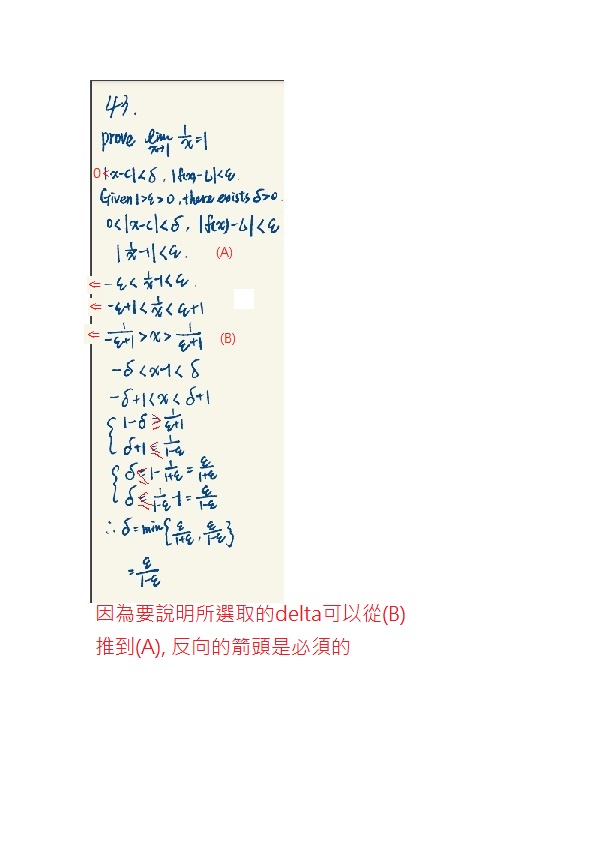 43.
prove lim x→1 1/x = 1
0<|x-c|<δ, |f(x)-L|<ε.
Given 1>ε>0, there exists δ>0.
0<|x-c|<δ, |f(x)-L|<ε
|1/x-1|<ε. (A)
⇐ -ε<1/x-1<ε.
⇐ -ε+1<1/x<ε+1
⇐ 1/(-ε+1)>x>1/(ε+1) (B)
-δ<x-1<δ
-δ+1<x<δ+1
{ 1-δ≥1/(ε+1)
δ+1≤1/(1-ε)
{ δ≤1-1/(1+ε)=ε/(1+ε)
δ≤1/(1-ε)-1=ε/(1-ε)
∴ δ=min{ε/(1+ε), ε/(1-ε)}
=ε/(1-ε)
因為要說明所選取的delta可以從(B)
推到(A), 反向的箭頭是必須的